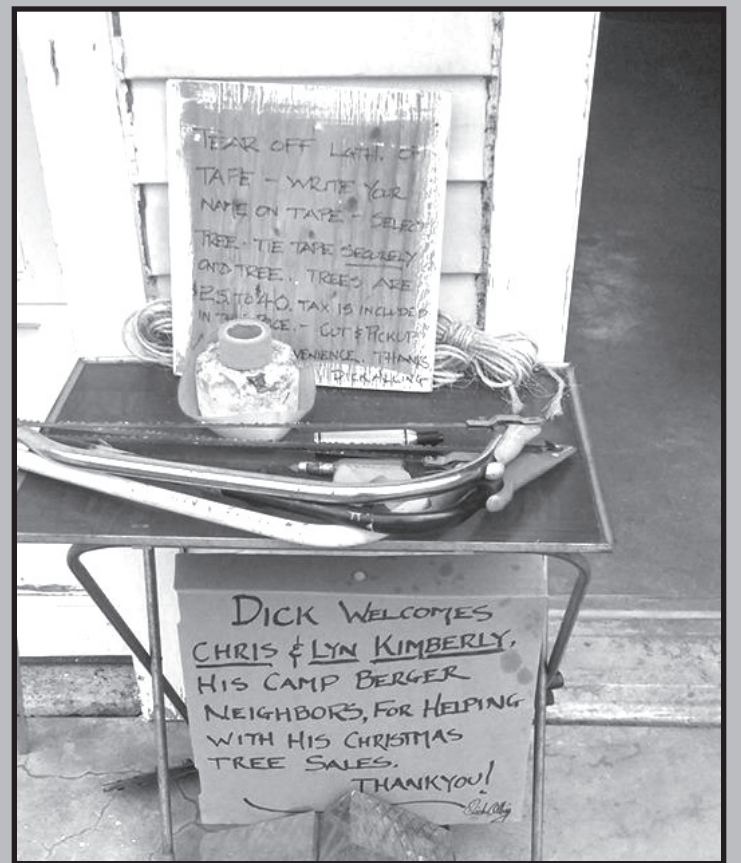 TEAR OFF LGTH. OF
TAPE - WRITE YOUR
NAME ON TAPE - SELECT
TREE - TIE TAPE SECURELY
ONTO TREE.. TREES ARE
$25. TO $40. TAX IS INCLUDED
IN PRICE. - CUT & PICKUP
VENIENCE. THANKS
DICK ALLING
DICK WELCOMES
CHRIS & LYN KIMBERLY,
HIS CAMP BERGER
NEIGHBORS, FOR HELPING
WITH HIS CHRISTMAS
TREE SALES.
THANKYOU!
Dick Alling